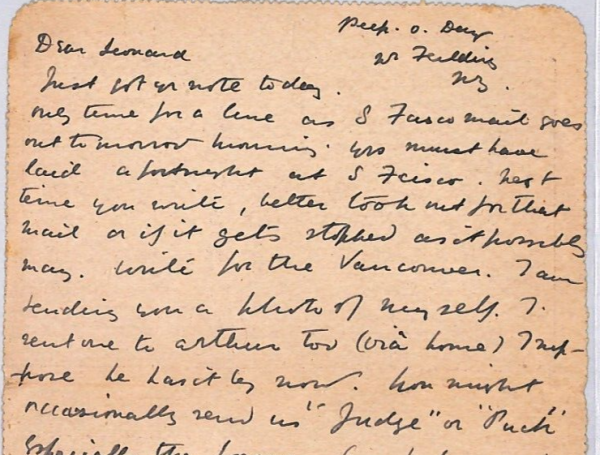 Peep. o. Day
nr Feilding
NZ.
Dear Leonard
Just got yr note today.
only time for a line as S Fcisco mail goes
out tomorrow morning. yrs must have
laid a fortnight at S Fcisco. next
time you write, better look out for that
mail or if it gets stopped as it possibly
may. write for the Vancouver. I am
sending you a photo of myself. I
sent one to Arthur too (viâ home) I sup-
pose he has it by now. You might
occasionally send us "Judge" or "Puck"
especially the